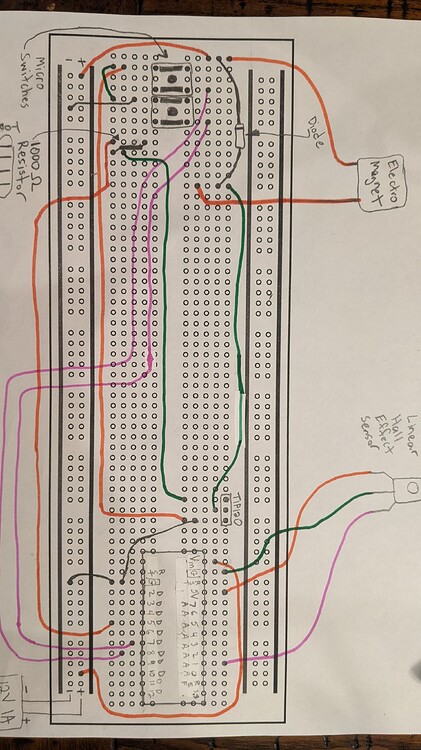 Micro
Switches
1000Ω
Resistor
Diode
Electro
Magnet
Linear
Hall
Effect
Sensor
TIP120
Vin
12V 1A
+
-